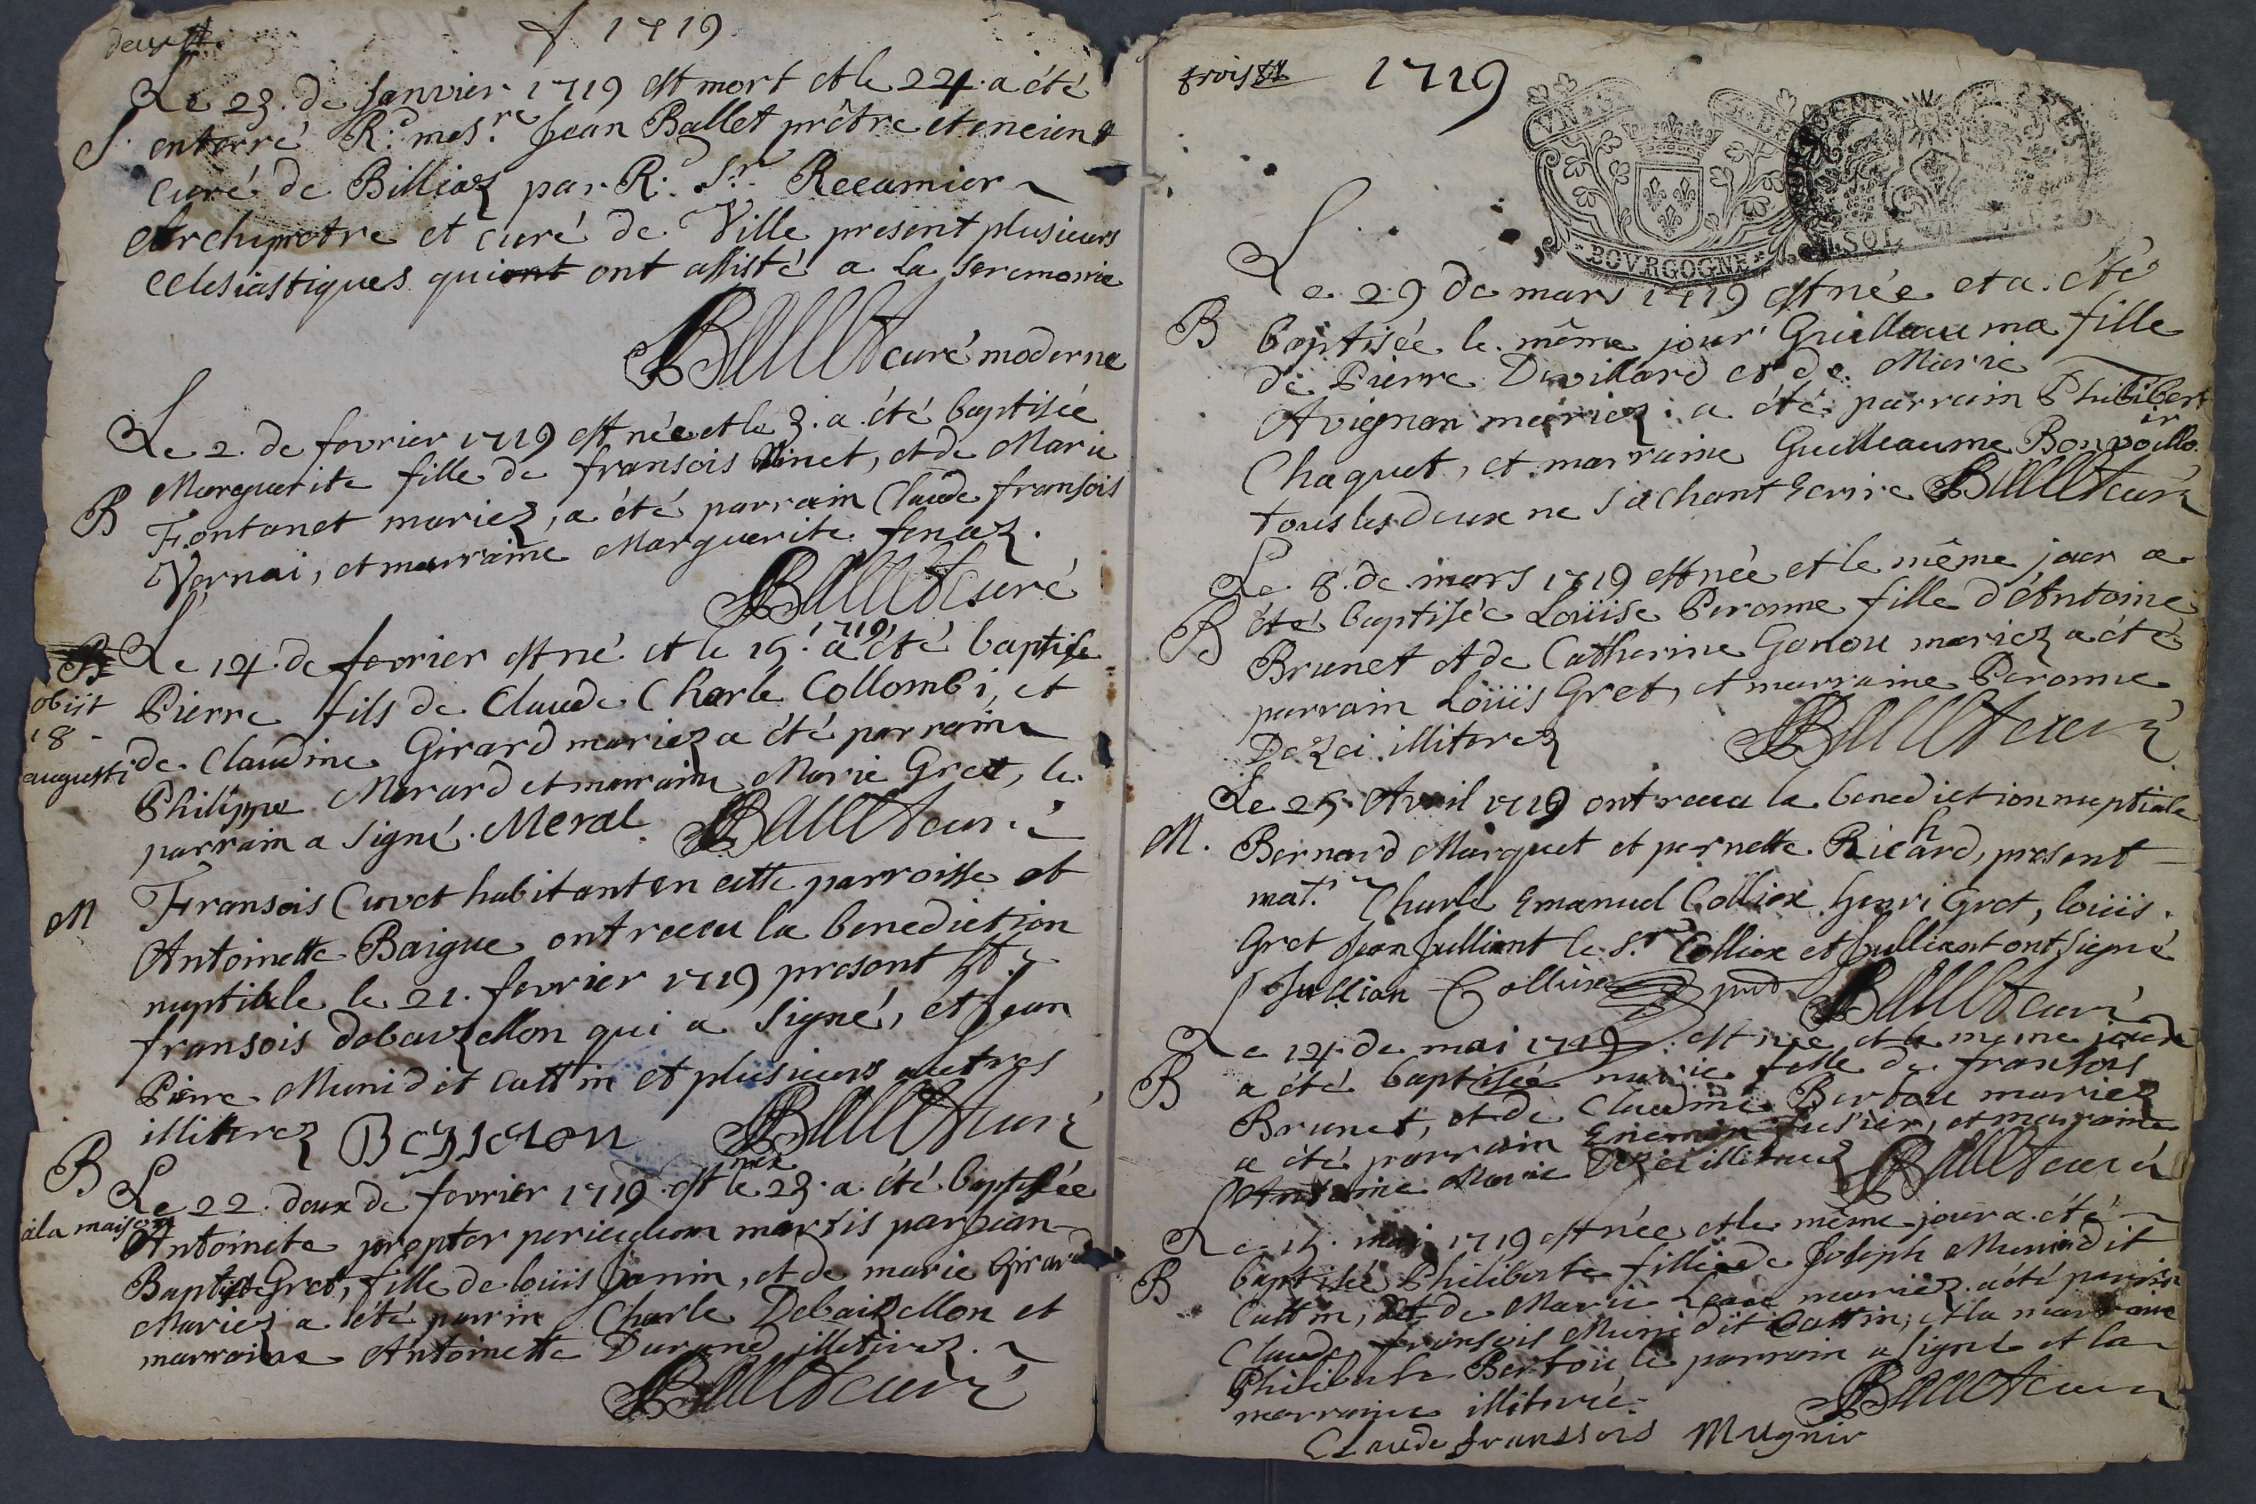 deux
1719
Le 23. de Janvier 1719 est mort et le 24. a été
S. enterré R.d mes.re Jean Ballet prêtre et encien
curé de Billiaz par R.d S.r Recamier
Archiprêtre et curé de Ville present plusieurs
eclesiastiques qui ont ont assisté a la seremonie
Ballet curé moderne
Le 2. de fevrier 1719 est née et le 3. a été baptisée
Marguerite fille de fransois Vinet, et de Marie
B Fontanet mariez, a été parrain Claude fransois
Vernai, et marraine Marguerite fenaz.
Ballet curé
B Le 14. de fevrier est né et le 15. 1719 a été baptise
obiit Pierre fils de Claude Charle Collombi, et
18 de Claudine Girard mariez a été parrain
augusti Philippe Merard et marraine Marie Gret, le
parrain a signé. Meral Ballet curé
M Fransois Cuvet habitant en cette parroisse et
Antoinette Baigue ont receu la benediction
nuptiale le 21. fevrier 1719 present S.r
fransois debeizellon qui a signé, et Jean
Pierre Muni dit cattin et plusieurs autres
illiterez Beyseron Ballet curé
B Le 22. deux de fevrier 1719 est née le 23. a été baptisée
a la maison Antoinete propter periculum mortis par Jean
Baptiste Gret, fille de loüis Janin, et de marie Girard
Mariez a été parrin Charle Debaizellon et
marraine Antoinette Durand illiterez.
Ballet curé
trois 1719
VN
BOVRGOGNE
Le 29 de mars 1719 est née et a été
B baptisée le même jour Guilleauma fille
de Pierre Devillard et de Marie
Avignon mariez a été parrain Philibert
Chaquet, et marraine Guilleaume Bonvoillo
tous les deux ne sachant ecrire Ballet curé
Le 8. de mars 1719 est née et le même jour a
B été baptisée Loüise Peronne fille d'Antoine
Brunet et de Catherine Gonou mariez a été
parrain Loüis Gret, et marraine Peronne
Dezei illiterez Ballet curé
Le 25 Avril 1719 ont receu la benediction nuptiale
M. Bernard Marquet et pernette Richard, present
mat.e Charle Emanuel Colliex henri Gret, loüis
Gret Jean Julliant le S.r Colliex et Julliant ont signé
Jullian Colliex Ballet curé
Le 14. de mai 1719 est née et le meme jour
B a été baptisée marie fille de fransois
Brunet, et de Claudine Bertou mariez
a été parrain et marraine
Antoine Marie Dezei illiterez Ballet curé
Le 15. mai 1719 est née et le même jour a été
B baptisée Philiberte fille de Joseph Muni dit
Cattin, et de Marie mariez a été parrin
Claude fransois Muni dit Cattin, et la marraine
Philiberte Bertou le parrain a signé et la
marraine illiterée. Ballet curé
Claude franssois Mugnir